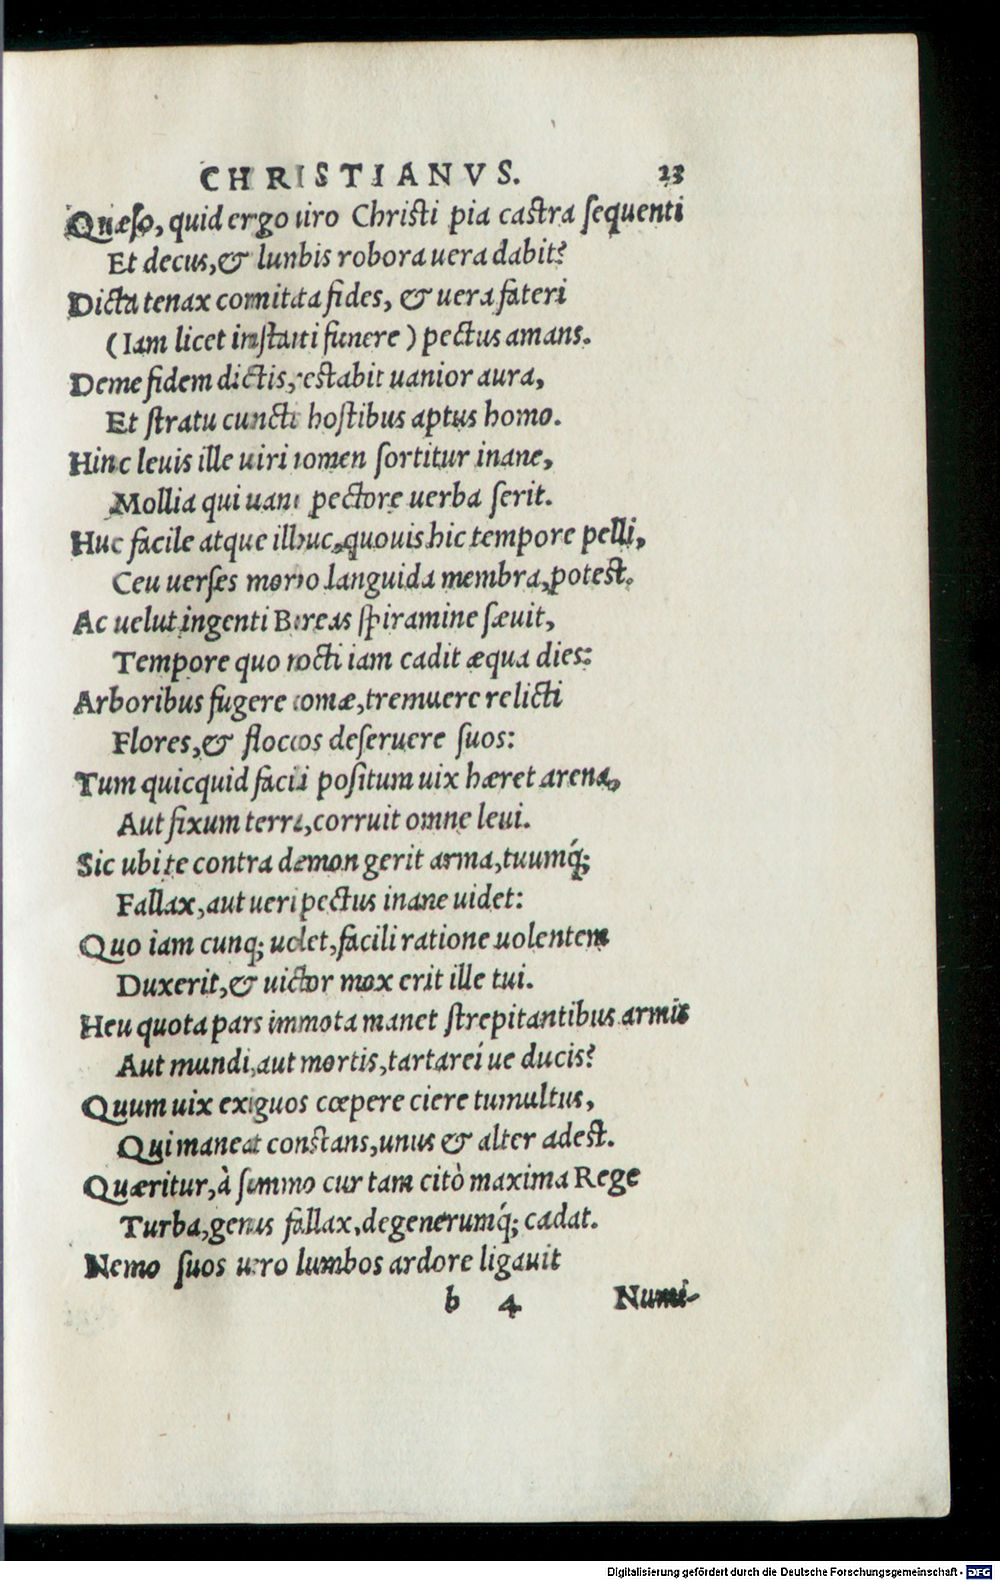 CHRISTIANVS. 23
Quæso, quid ergo uiro Christi pia castra sequenti
Et decus, & lumbis robora uera dabit?
Dicta tenax comitata fides, & uera fateri
(Iam licet instanti funere) pectus amans.
Deme fidem dictis, restabit uanior aura,
Et stratu cunctis hostibus aptus homo.
Hinc leuis ille uiri nomen sortitur inane,
Mollia qui uano pectore uerba serit.
Huc facile atque illuc, quouis hic tempore pelli,
Ceu uerses morbo languida membra, potest.
Ac uelut ingenti Boreas spiramine sæuit,
Tempore quo nocti iam cadit æqua dies:
Arboribus fugere comæ, tremuere relicti
Flores, & floccos deseruere suos:
Tum quicquid facili positum uix hæret arena,
Aut fixum terra, corruit omne leui.
Sic ubi te contra demon gerit arma, tuumq́;
Fallax, aut ueri pectus inane uidet:
Quo iam cunq; uolet, facili ratione uolentem
Duxerit, & uictor mox erit ille tui.
Heu quota pars immota manet strepitantibus armis
Aut mundi, aut mortis, tartarei ue ducis?
Quum uix exiguos cœpere ciere tumultus,
Qui maneat constans, unus & alter adest.
Quæritur, à summo cur tam citò maxima Rege
Turba, genus fallax, degenerumq́; cadat.
Nemo suos uero lumbos ardore ligauit
b 4 Numi-
Digitalisierung gefördert durch die Deutsche Forschungsgemeinschaft - DFG